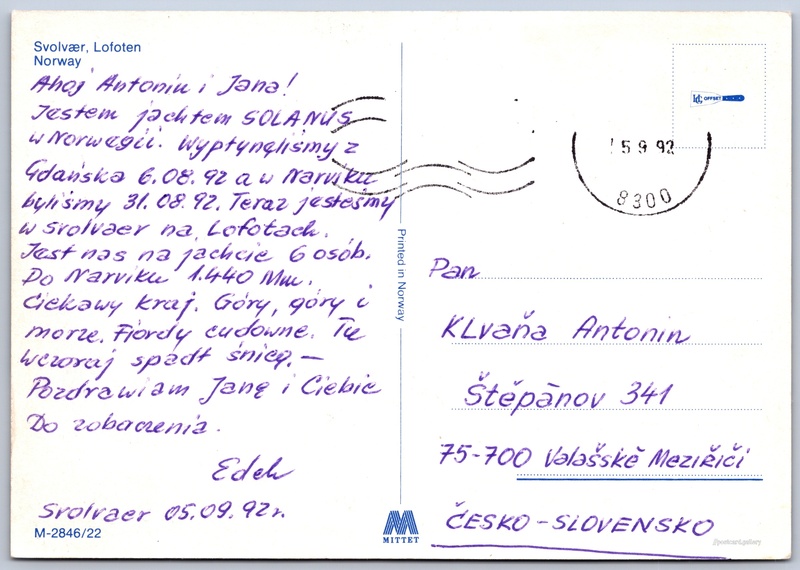 Svolvær, Lofoten
Norway
Ahoj Antoniu i Jana!
Jestem jachtem SOLANUS
w Norwegii. Wypłynęliśmy z
Gdańska 6.08.92 a w Narviku
byliśmy 31.08.92. Teraz jesteśmy
w Svolvaer na Lofotach.
Jest nas na jachcie 6 osób.
Do Narviku 1.440 Mm.
Ciekawy kraj. Góry, góry i
morze. Fiordy cudowne. Tu
wczoraj spadł śnieg. —
Pozdrawiam Janę i Ciebie
Do zobaczenia.
Edek
Svolvaer 05.09.92r.
M-2846/22
Printed in Norway
MITTET
OFFSET
5 9 92
8300
Pan
KLvaňa Antonin
Štěpánov 341
75-700 Valašské Meziříčí
ČESKO-SLOVENSKO